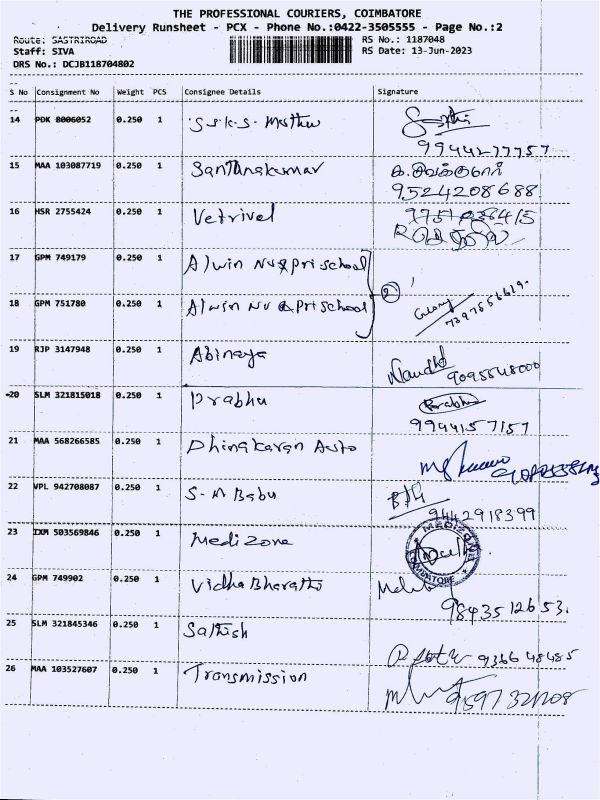 THE PROFESSIONAL COURIERS, COIMBATORE
Delivery Runsheet - PCX - Phone No.:0422-3505555 - Page No.:2
Route: SASTRIROAD RS No.: 1187048
Staff: SIVA RS Date: 13-Jun-2023
DRS No.: DCJB118704802
S No Consignment No Weight PCS Consignee Details Signature
14 PDK 8006052 0.250 1 S.S.K.S. Muthu
9944277757
15 MAA 103087719 0.250 1 Santhnakumar
9524208688
16 HSR 2755424 0.250 1 Vetrivel
17 GPM 749179 0.250 1 Alwin Nu & Pri school
18 GPM 751780 0.250 1 Alwin Nu & Pri School 2
7397656619.
19 RJP 3147948 0.250 1 Abinaya
20 SLM 321815018 0.250 1 Prabhu Prabhu
9944157157
21 MAA 568266585 0.250 1 Dhingkaran Auto
22 VPL 942708087 0.250 1 S-M Babu
9442918399
23 IXM 503569846 0.250 1 Medizone MEDIZONE
COIMBATORE
24 GPM 749902 0.250 1 Vidha Bharathi
9843512653.
25 SLM 321845346 0.250 1 Sathish
9366 48485
26 MAA 103527607 0.250 1 Transmission